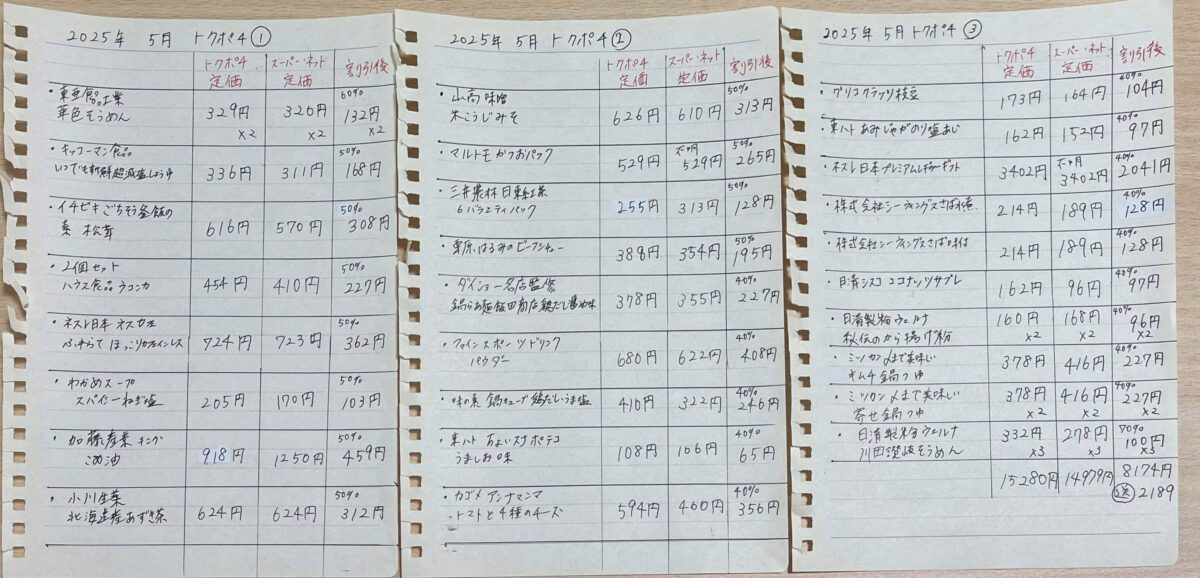 2025年 5月 トクポチ①
トクポチ定価 スーパー・ネット定価 割り引後
・東亜食品工業 60%
華色そうめん 329円 320円 132円
×2 ×2 ×2
・キッコーマン食品 50%
いつでも新鮮超減塩しょうゆ 336円 311円 168円
・イチビキごちそう釜飯の 50%
素 松茸 616円 570円 308円
・2個セット 50%
ハウス食品ウコンカ 454円 410円 227円
・ネスレ日本 ネスカフェ 50%
ふわラテ ほっこりカフェインレス 724円 723円 362円
・わかめスープ 50%
スパイシーねぎ塩 205円 170円 103円
・加藤産業 キング 50%
こめ油 918円 1250円 459円
・小川生薬 50%
北海道産あずき茶 624円 624円 312円
2025年 5月 トクポチ②
トクポチ定価 スーパー・ネット定価 割り引後
・山高味噌 50%
木こうじみそ 626円 610円 313円
・マルトモかつおパック 529円 529円 50% 265円
・三井農林 日東紅茶 50%
6バラエティパック 255円 313円 128円
・栗原はるみのビーフシチュー 388円 354円 50% 195円
・ダイショー名店監修 40%
鍋らぁ麺飯田商店鶏だし醤油味 378円 355円 227円
・ファインスポーツドリンク 40%
パウダー 680円 622円 408円
・味の素 鍋キューブ鶏だしうま塩 410円 322円 40% 246円
・東ハト ちょいスナポテコ 40%
うましお味 108円 106円 65円
・カゴメ アンナマンマ 40%
トマトと4種のチーズ 594円 460円 356円
2025年 5月 トクポチ③
トクポチ定価 スーパー・ネット定価 割引後
・グリコクラッツ枝豆 173円 164円 40% 104円
・東ハトあみじゃがのり塩あじ 162円 152円 40% 97円
・ネスレ日本プレミアムギフト 3402円 3402円 40% 2041円
・株式会社シーウィングスさば水煮 214円 189円 40% 128円
・株式会社シーウィングスさば味付 214円 189円 40% 128円
・日清シスコ ココナッツサブレ 162円 96円 40% 97円
・日清製粉ウェルナ 160円 168円 40% 96円
秘伝のから揚げ粉 ×2 ×2 ×2
・ミツカン〆まで美味しい 378円 416円 40% 227円
キムチ鍋つゆ
・ミツカン〆まで美味しい 378円 416円 40% 227円
寄せ鍋つゆ ×2 ×2 ×2
・日清製粉ウェルナ 332円 278円 70% 100円
川田讃岐そうめん ×3 ×3 ×3
15280円 14979円 8174円
送 2189